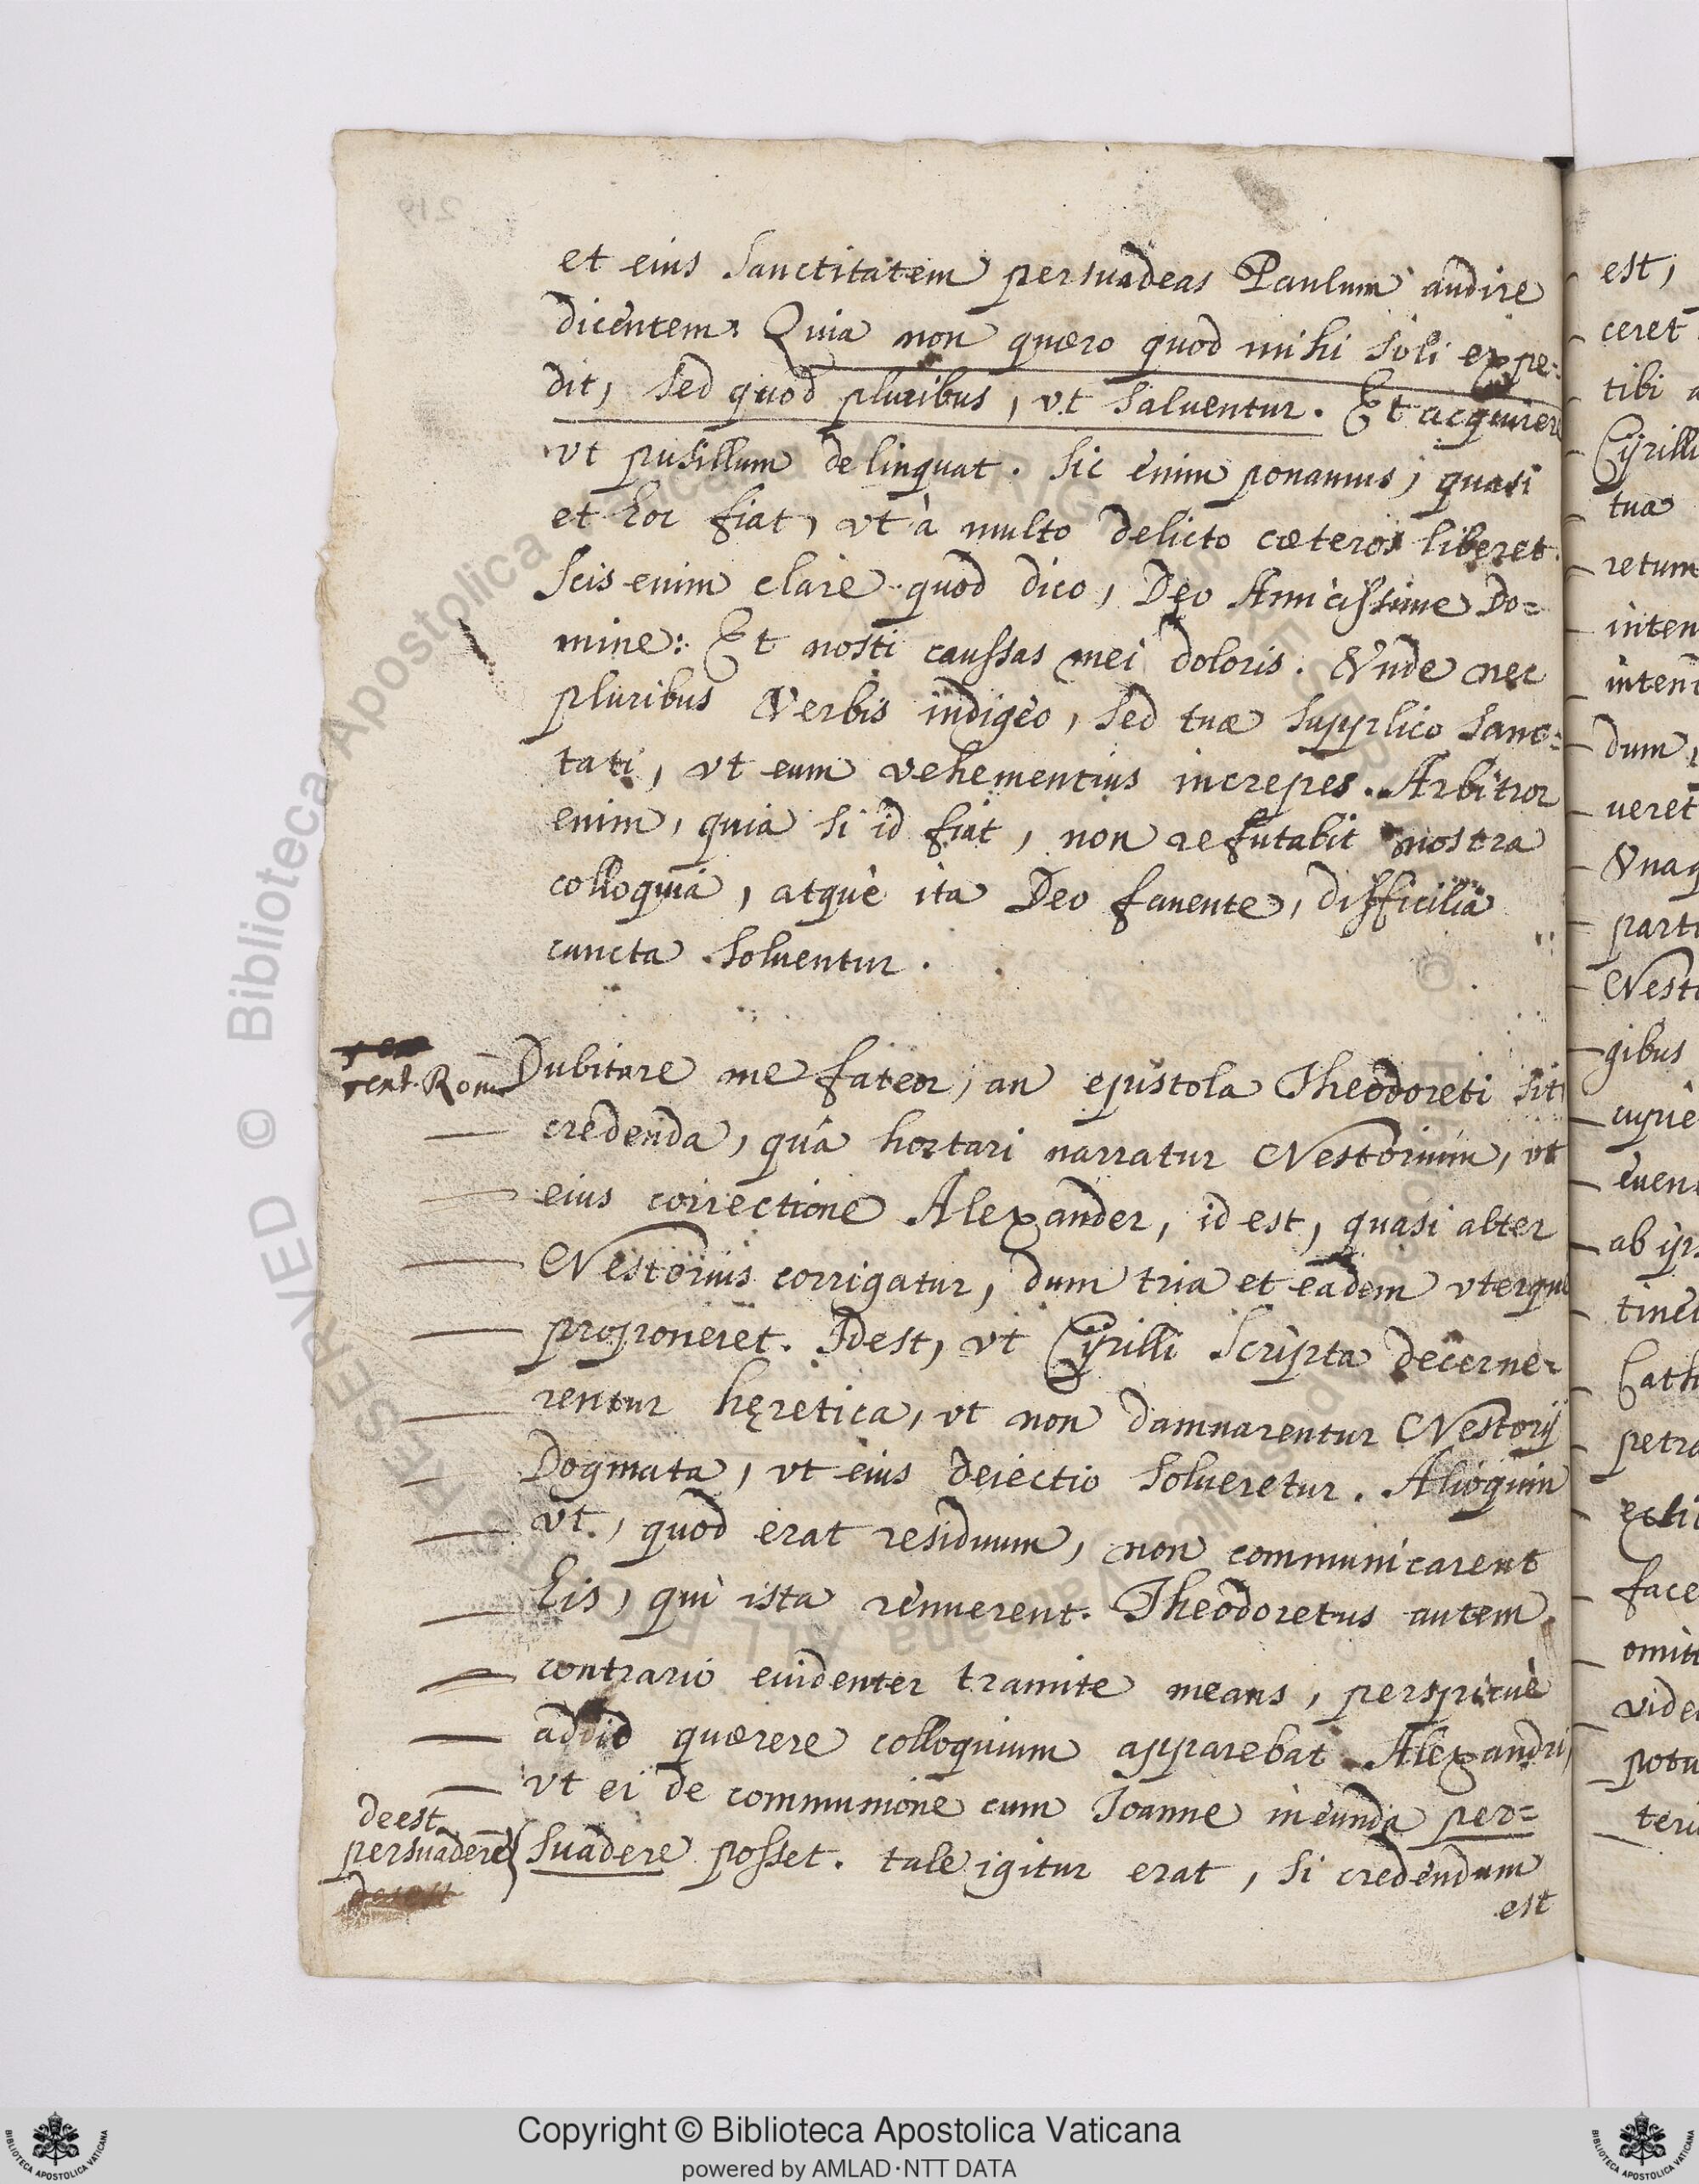 et eius Sanctitatem persuadeas Paulum audire
dicentem: Quia non quæro quod mihi soli expe=
dit, sed quod pluribus, vt saluentur. Et acquiere
vt pusillum delinquat. Sic enim ponamus, quasi
et hoc fiat, vt à multo delicto cæteros liberet.
Scis enim clarè quod dico, Deo Amicissime Do=
mine: Et nosti caussas mei doloris. Vnde nec
pluribus Verbis indigeo, sed tuæ supplico Sanc=
tati, vt eum vehementius increpes. Arbitror
enim, quia si id fiat, non refutabit nostra
colloquia, atquè ita Deo fauente, difficilia
cuncta soluentur.
Rom
Dubitare me fateor, an epistola Theodoreti sit
credenda, quâ hortari narratur Nestorium, vt
eius correctione Alexander, id est, quasi alter
Nestorius corrigatur, dum tria et eadem vterque
proponeret. Idest, vt Cyrilli Scripta decerne=
rentur hęretica, vt non damnarentur Nestorij
Dogmata, vt eius deiectio solueretur. Alioquin
vt, quod erat residuum, non communicarent
his, qui ista rennuerent. Theodoretus autem
contrario euidenter tramite means, perspicuè
quærere colloquium apparebat Alexandri,
vt ei de communione cum Joanne ineunda per=
deest
persuadere
suadere posset. tale igitur erat, si credendum
est
est,
ceret
tibi a
Cyrilli
tua
retum
inten
inten
dum,
ueret
Vnaq
parti
Nesto
gibus
cupie
euen
ab ips
tinei
Cath
petra
eccli
face
omit
vide
potu
teri
219
Copyright © Biblioteca Apostolica Vaticana
powered by AMLAD·NTT DATA